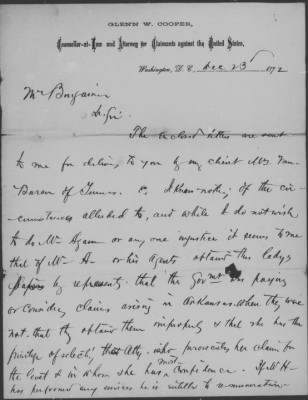 GLENN W. COOPER,
Counsellor-at-Law and Attorney for Claimants against the United States,
Washington, D. C. Dec 23 1872
Mr Benjamin
Dr Sir
The enclosed letters are sent
to me for delivery to you by my client Mrs Van
Buren of Tenn. I know nothing of the cir-
cumstances alluded to, and while I do not wish
to do Mr or any one injustice it seems to me
that if Mr H— or his agents obtained this ladys
papers by representing that the Govmt was paying
or considering claims arising in Arkansas when they were
not that they obtain them improperly & that she has the
privilege of selecting that Atty. who prosecutes her claim for
the Govt & in whom she has most confidence. If Mr H—
has performed any services he is entitled to remuneration